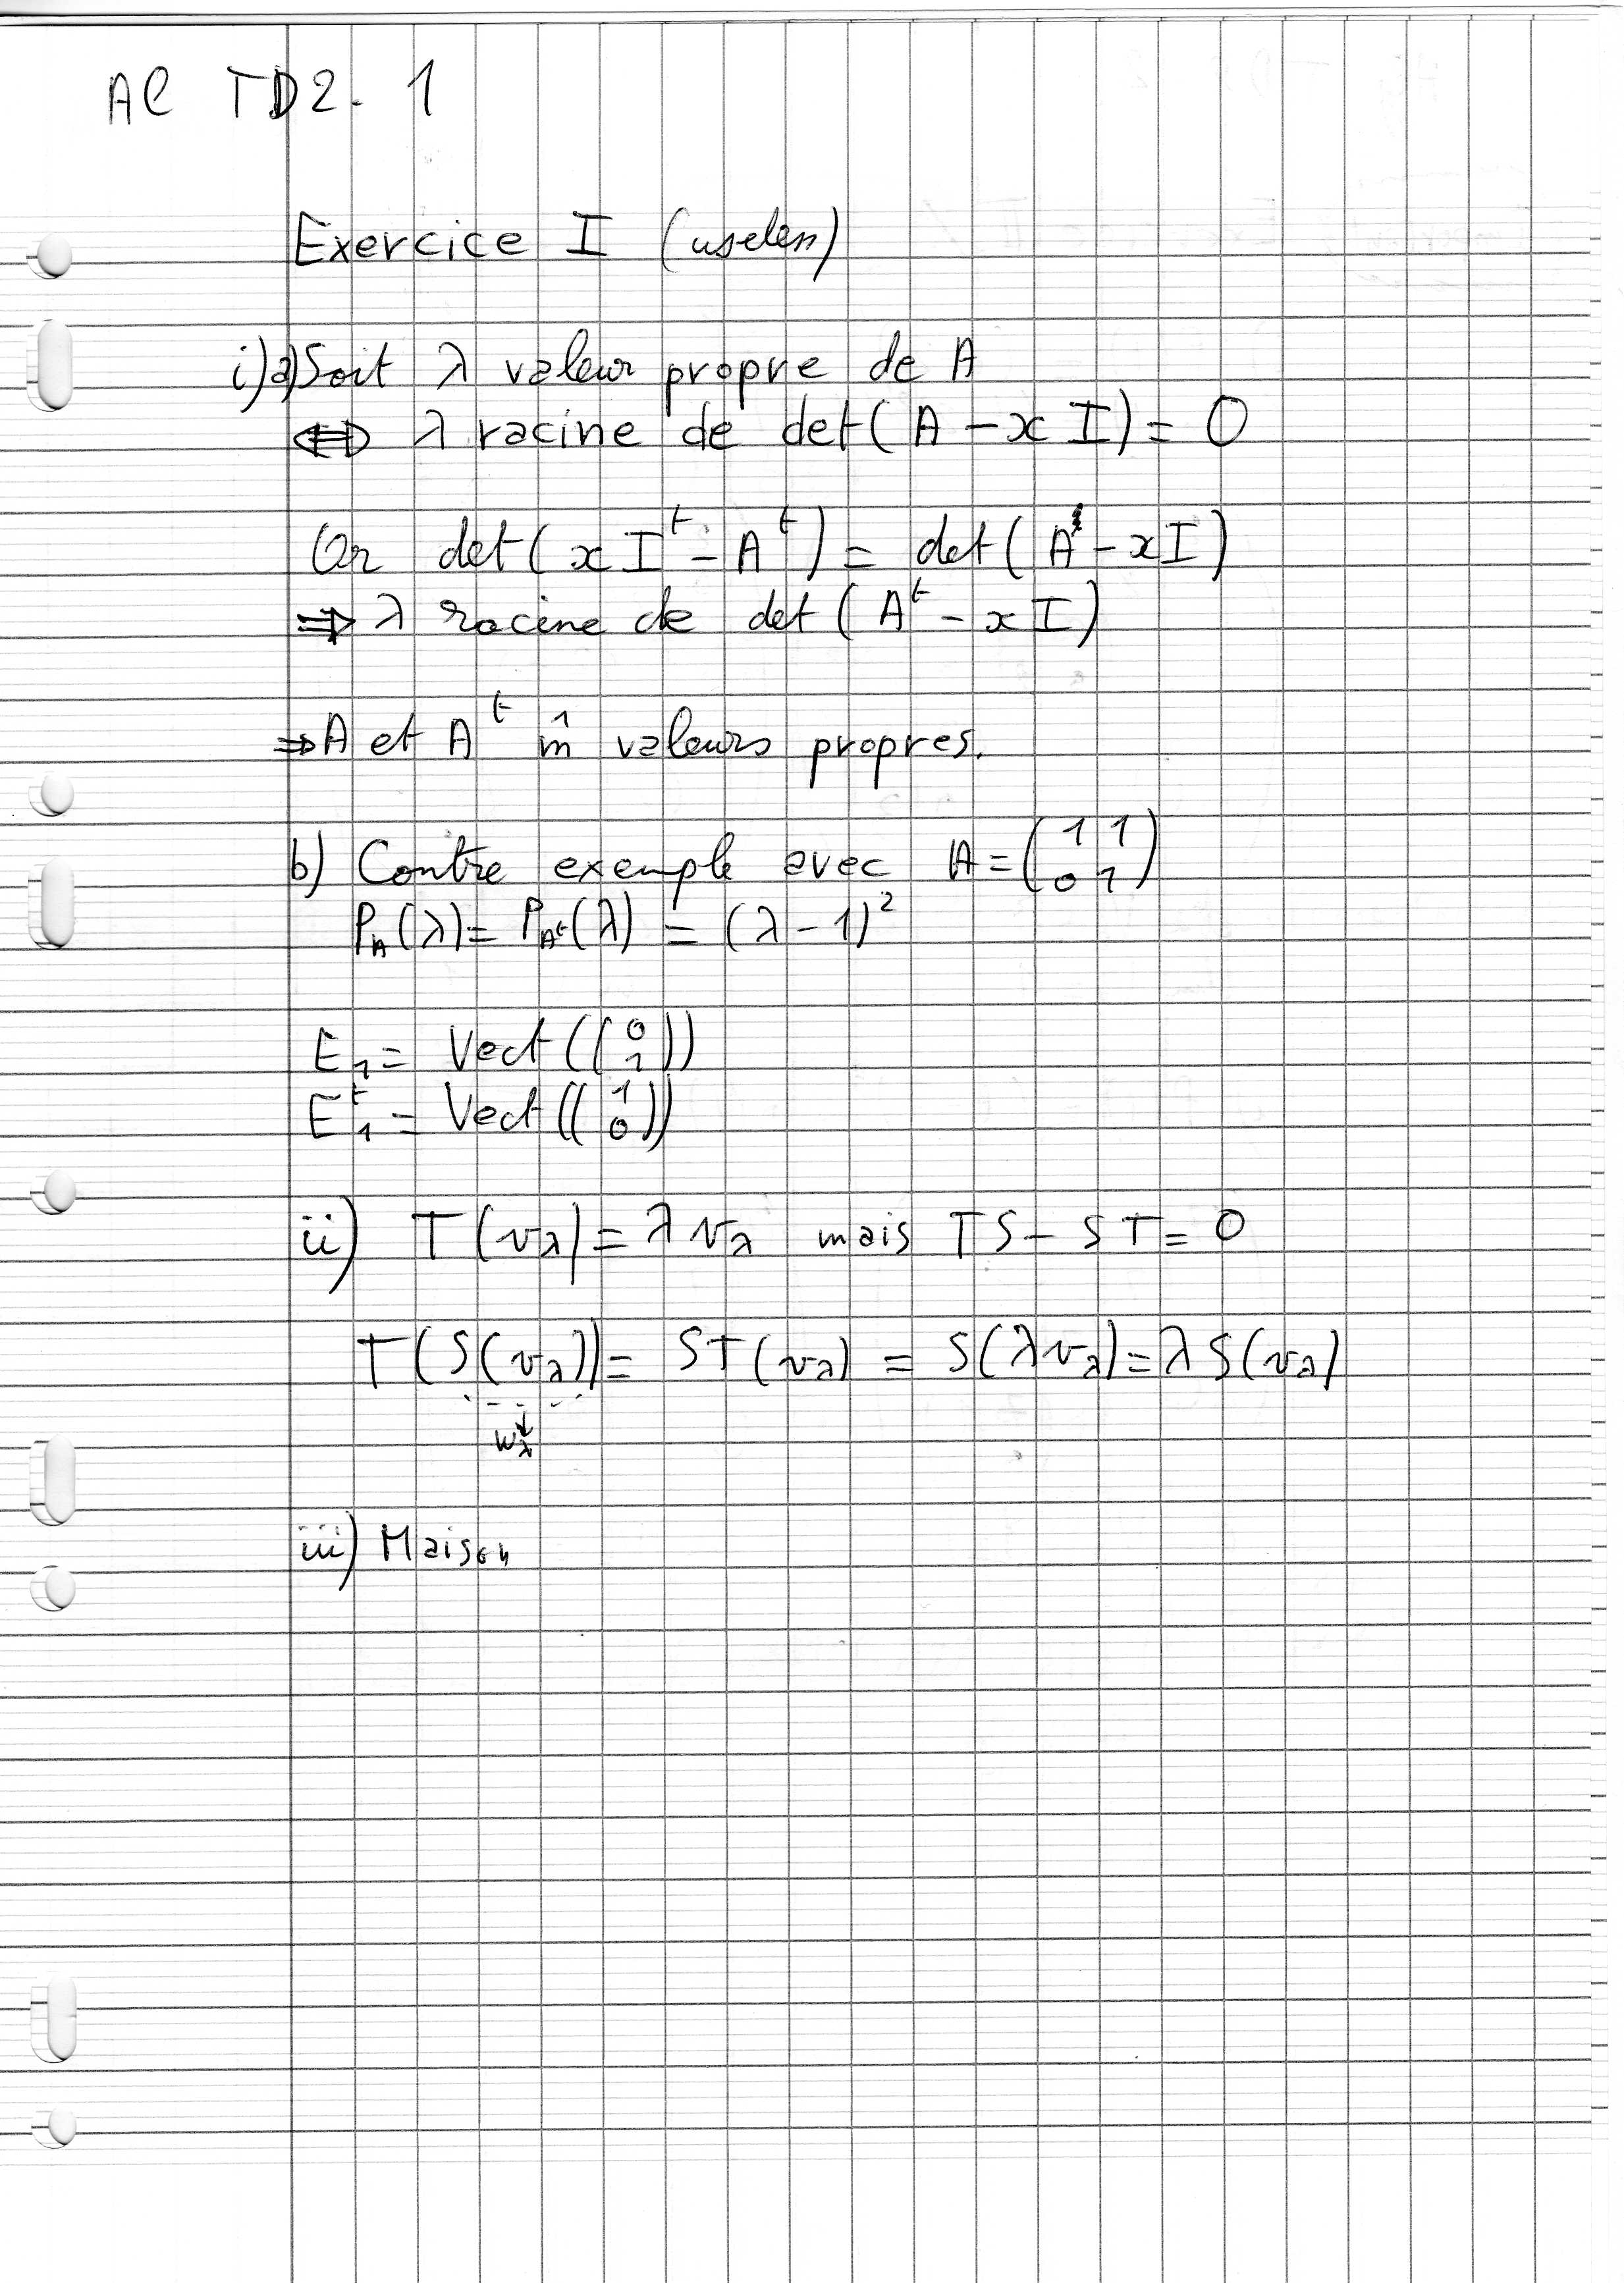 AC TD2. 1
Exercice I (useless)
i) a) Soit λ valeur propre de A
⇔ λ racine de det(A - xI) = 0
Or det(xIᵗ - Aᵗ) = det(A - xI)
⇒ λ racine de det(Aᵗ - xI)
⇒ A et Aᵗ m̂ valeurs propres.
b) Contre exemple avec A = (1 1
0 1)
P_A(λ) = P_Aᵗ(λ) = (λ - 1)²
E₁ = Vect((0
1))
E₁ᵗ = Vect((1
0))
ii) T(v_λ) = λ v_λ mais TS - ST = 0
T(S(v_λ)) = ST(v_λ) = S(λ v_λ) = λ S(v_λ)
w_λ
iii) Maison